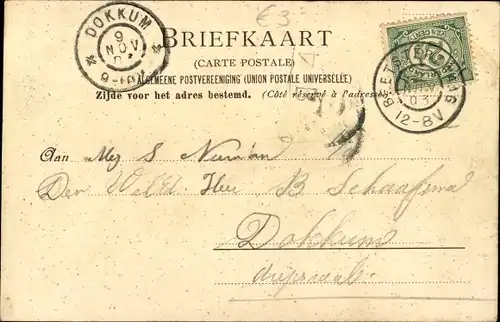 €3
DOKKUM
9
NOV
BRIEFKAART
(CARTE POSTALE)
ALGEMEENE POSTVEREENIGING (UNION POSTALE UNIVERSELLE)
Zijde voor het adres bestemd. (Côté réservé à l'adresse)
NOV
03
12-8V
Aan Mej S Nieman
Den Weled. Heer B Schaafsma
Dokkum